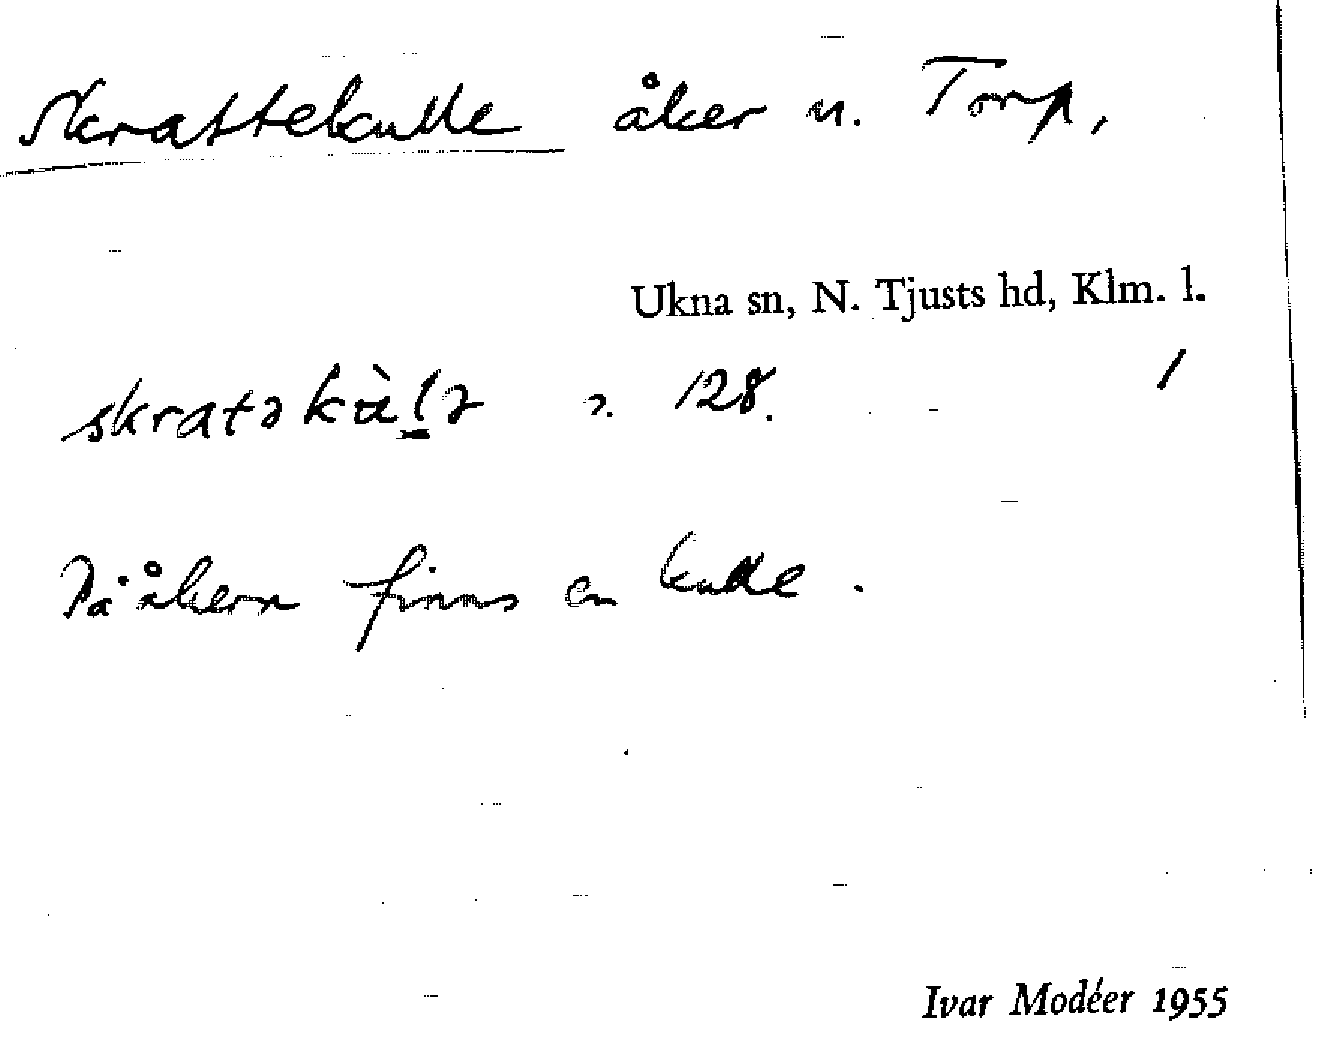 Skrattekulle åker u. Torp,
Ukna sn, N. Tjusts hd, Klm. l.
128. /
På åkern finns en kulle.
Ivar Modéer 1955